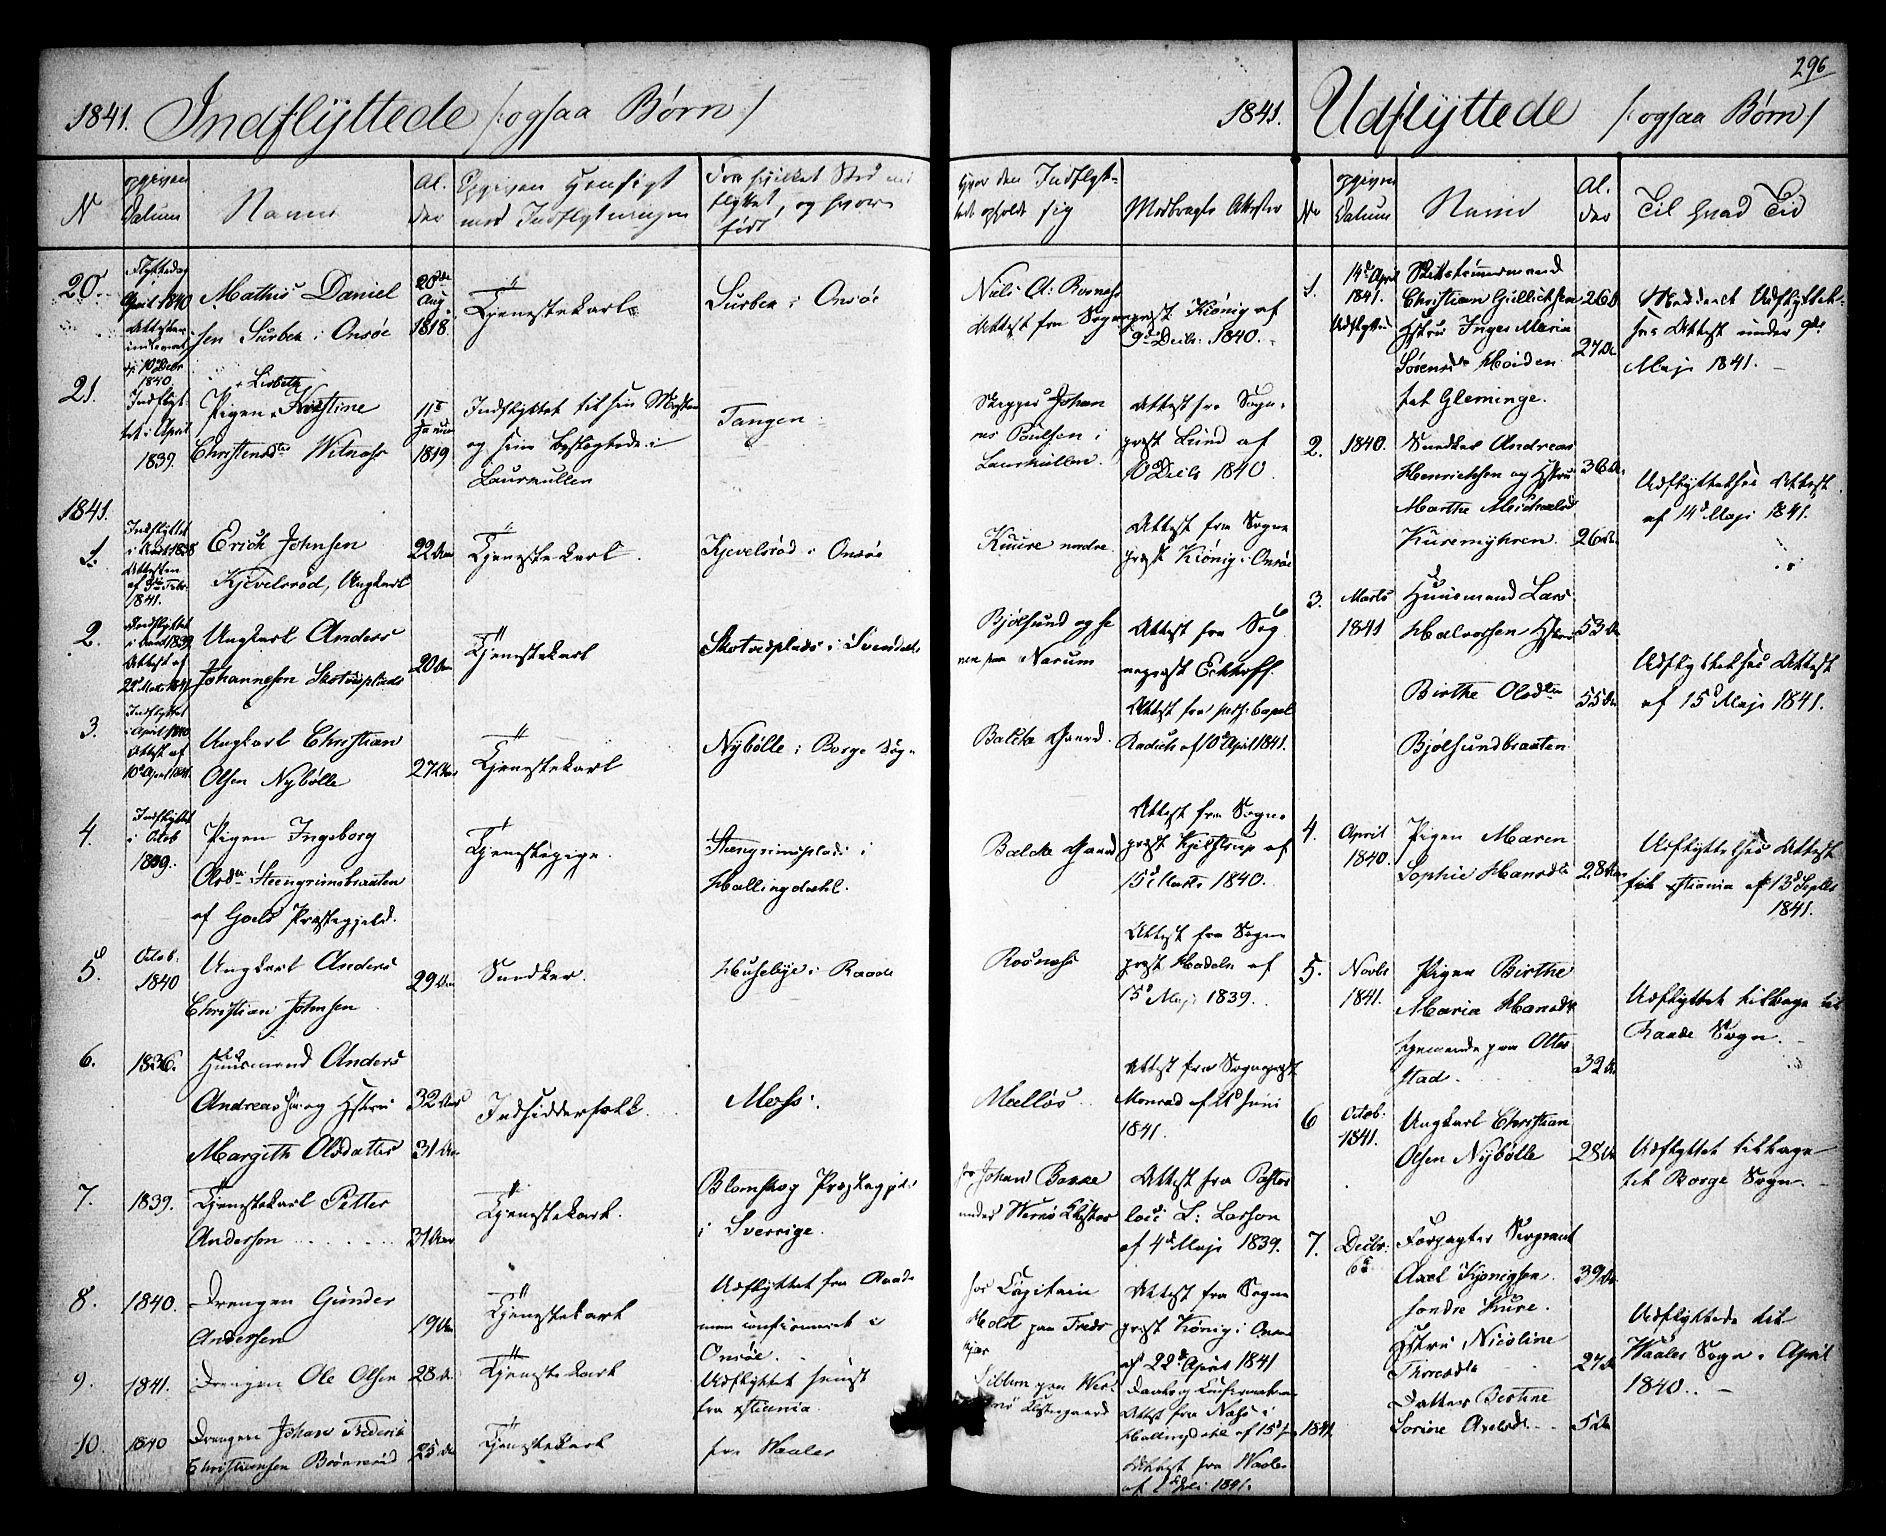 296
1841. Indflÿttede /: ogsaa Børn /
1841. Udflÿttede /: ogsaa Børn /
N
opgiven Datum
Navne
Al. der
Opgiven Hensigt med Indflytningen
Fra hvilket Sted
flyttet, og hvor
født
Hvor den Indflyt=
tet opholdt sig
Medbragte Attester
No
opgiven Datum
Navne
Al. der
Til hvad Tid
20.
Flyttedag
April 1840
Attesten
10 Decbr
1840.
Mathis Daniel
sen Surben i Onsöe
20de
Aug
1818.
Tjenestekarl
Surben i Onsöe
Niels A: Rosnæs
Attest fra Sognepræst Kiönig af
9de Decbr. 1840.
21.
Indflyt-
tet i April
1839.
Pigen Lisbeth Kirstine
Christensdtr Witnæss
11te
Januar
1819
Indflyttet til sin
og sine beslægtede i
Laurkullen
Tangen
Skipper Johan
nes Poulsen i
Laurkullen.
Attest fra Sogne-
præst Lund af
10 Decbr 1840.
1841.
1.
Indflyttet
i April 1838
Attesten
af Febr
1841.
Erich Johnsen
Kjevelsröd, Ungkarl
22 Aar
Tjenestekarl.
Kjevelsröd i Onsöe
Kuure nordre.
Attest fra Sogne
præst Kiönig i Onsöe
2.
Indflyttet
i April 1839
Attest af
22 Marts 1841
Ungkarl Anders
Johannesen Skotvedplads
20 Aar
Tjenestekarl
Skotvedplads i Svendahl
Bjölsund og se
nere paa Narum
Attest fra Sog
nepræst Eckhoff.
3.
Indflyttet
i April 1840
Attest af
10d April 1841.
Ungkarl Christian
Olsen Nybölle
27 Aar
Tjenestekarl
Nyböle i Borge Sogn
Balcke Gaard.
Attest fra pers: Capel
Radich af 10d April 1841.
4.
Indflyttet
i Octob
1839.
Pigen Ingeborg
Olsdtr Steengrimsbraaten
af Goels Præstegjeld.
Tjenestepige.
Steengrimsplads i
Hallingdahl.
Balcke Gaard
Attest fra Sogne
præst Kjelstrup af
15d Marts 1840.
5.
Octob.
1840
Ungkarl Anders
Christian Johnsen
29 Aar
Snedker.
Husebÿe i Raade
Rosnæss
Attest fra Sogne
præst Hadeln af
15d Maj 1839.
6.
1836.
Huusmand Anders
Andreassen og Hstru
Margith Olsdatter
32 Aar
31 Aar
Indsidderfolk.
Moss.
Mellös
Attest fra Sognepræst
Monrad af Juni
1841.
7.
1839.
Tjenestekarl Petter
Andersen
31 Aar
Tjenestekarl.
Blomskog Præstegjeld
i Sverrige.
hos Johan Bakke
under Wernö Kloster
Attest fra Pastor
loci L: Larson
af 4d Maji 1839.
8.
1840.
Drengen Gunder
Andersen
19 Aar
Tjenestekarl
Udflyttet fra Raade
men confirmeret i
Onsöe.
hos Capitain
Holst paa Freds
hjer
Attest fra Sogne
præst König i Onsöe
af 22d April 1841
9.
1841.
Drengen Ole Olsen
28 Ar
Tjenestekarl
Udflyttet sidst
fra Xstiania.
paa Wer
nö Klostergaard
Daabs og Confirmations
Attest fra Næss i
Hallingdahl af 15d 1841
10.
1840
Drengen Johan Frederik
Christiansen Brönnerød
25 Aar
Tjenestekarl
fra Waaler
Attest fra Waaler
af Juli 1841.
1.
14d April
1841.
Udflyttet
Christian Gullichsen
Hstru Inger Maria
Sörensdtr Heiden
til Gleminge.
26 Ar
27 Ar
Meddeelt Udflyttel=
ses Attest under 9de
Maji 1841.
2.
1840.
Snedker Andreas
Henrichsen og Hstru
Marthe Michaelsd
Kuremyhren.
36 Ar
26 Ar
Udflyttelses Attest
af 14d Maji 1841.
3.
Marts
1841
Huusmand Lars
Halvorsen Hstru
Birthe Olsdtr
Bjölsundbraaten.
53 Ar
55 Ar
Udflyttelses Attest
af 15d Maji 1841.
4.
April
1840.
Pigen Maren
Sophie Hansdtr
28 Aar
Udflyttelses Attest
til Xstiania af 13d Septbr
1841.
5.
Novbr
1841.
Pigen Birthe
Maria Hansdtr
hjemmende paa Otter
stad.
32 Ar
Udflyttet tilbage til
Raade Sogn.
6
Octob.
1841.
Ungkarl Christian
Olsen Nyböle
28 Ar
Udflyttet tilbage
til Borge Sogn.
7.
Decbr.
6d
Forpagter Sergeant
Axel Kjönigsen
söndre Kure.
Hstru Nicoline
Thoresdtr
Datter Bertine
Lorine Axelsdtr
39 Ar
27 Ar
5 Ar
Udflyttede til
Waaler Sogn i April
1840.